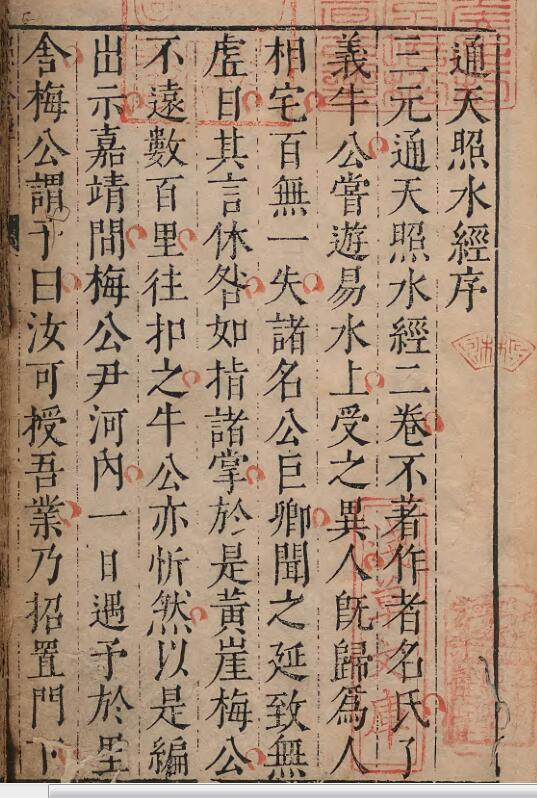 通天照水經序
三元通天照水經二卷不著作者名氏了
義牛公嘗遊易水上受之異人既歸為人
相宅百無一失諸名公巨卿聞之延致無
虗日其言休咎如指諸掌於是黃崖梅公
不遠數百里往扣之牛公亦忻然以是編
出示嘉靖間梅公尹河內一日遇予於里
舍梅公謂予曰汝可授吾業乃招置門下